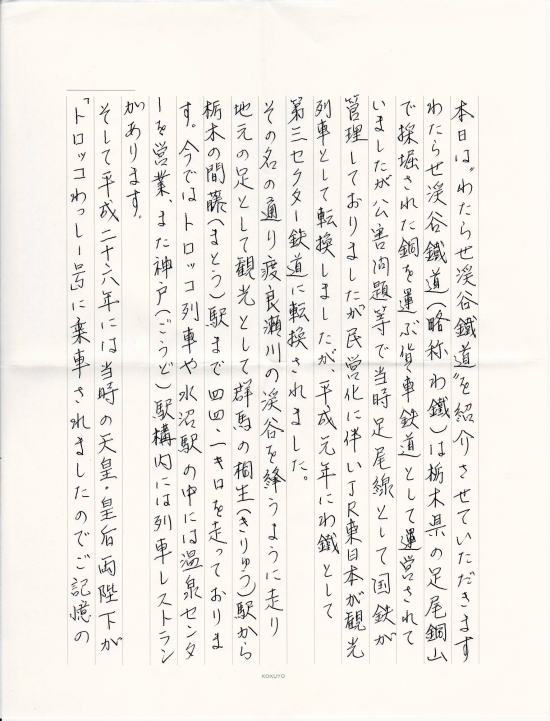 本日は〝わたらせ渓谷鐵道〟を紹介させていただきます
わたらせ渓谷鐵道(略称わ鐵)は栃木県の足尾銅山
で採堀された銅を運ぶ貨車鉄道として運営されて
いましたが公害問題等で当時足尾線として国鉄が
管理しておりましたが民営化に伴いJR東日本が観光
列車として転換しましたが、平成元年にわ鐵として
第三セクター鉄道に転換されました。
その名の通り渡良瀬川の渓谷を縫うように走り
地元の足として観光として群馬の桐生(きりゅう)駅から
栃木の間藤(まとう)駅まで四四.一キロを走っておりま
す。今ではトロッコ列車や水沼駅の中には温泉センタ
ーを営業、また神戸(ごうど)駅構内には列車レストラン
があります。
そして平成二十六年には当時の天皇・皇后両陛下が
「トロッコわっしー号」に乗車されましたのでご記憶の
KOKUYO